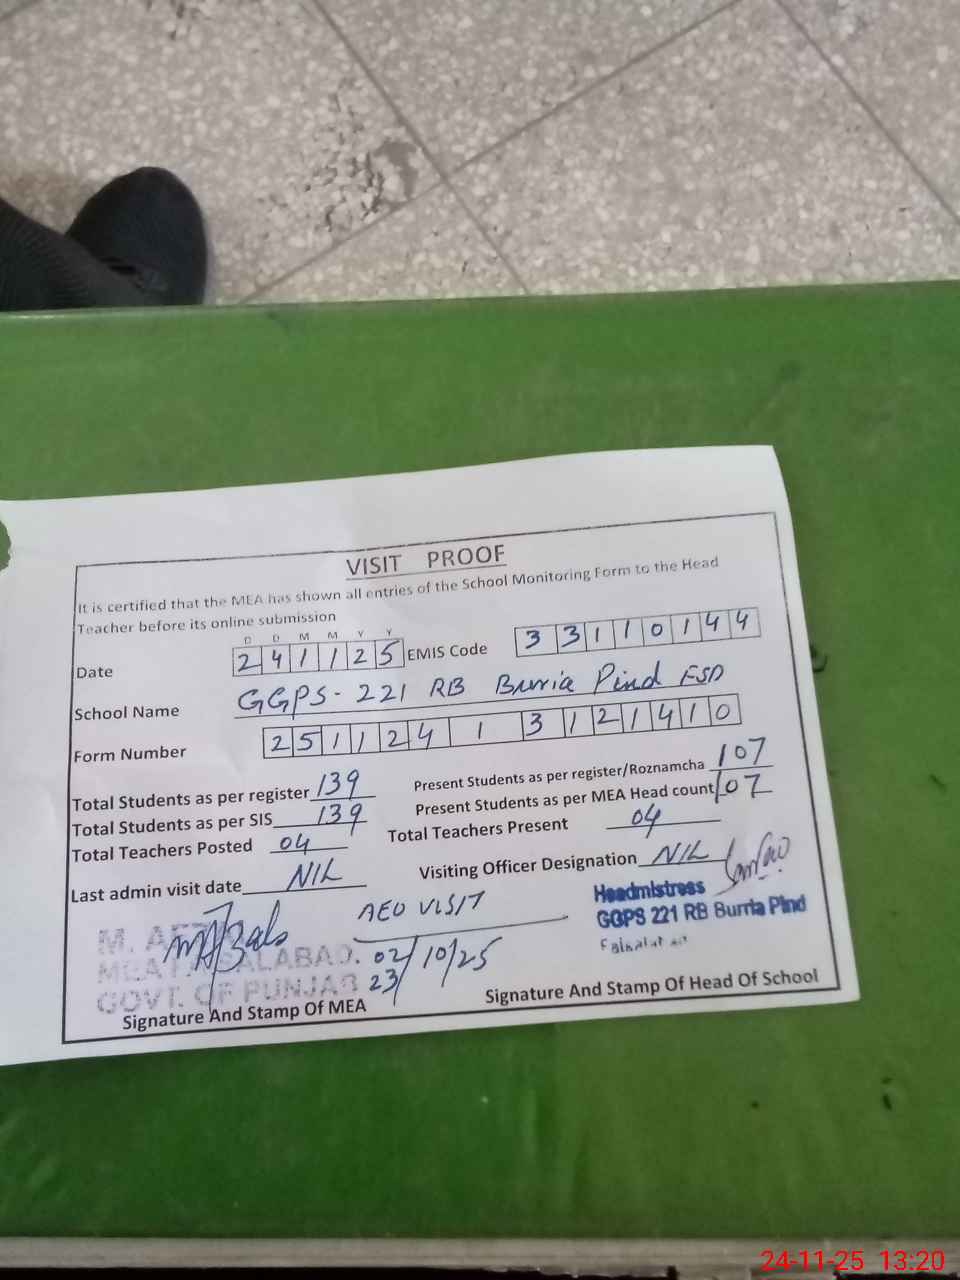 VISIT PROOF
It is certified that the MEA has shown all entries of the School Monitoring Form to the Head
Teacher before its online submission
D D M M Y Y
Date 241125 EMIS Code 33110144
School Name GGPS- 221 RB Burria Pind FSD
Form Number 251124 1 3121410
Total Students as per register 139 Present Students as per register/Roznamcha 107
Total Students as per SIS 139 Present Students as per MEA Head count 107
Total Teachers Posted 04 Total Teachers Present 04
Last admin visit date NIL Visiting Officer Designation NIL
AEO VISIT
02/10/25
23
M. AFZAL
MEA FAISALABAD.
GOVT. OF PUNJAB
Signature And Stamp Of MEA
Headmistress
GGPS 221 RB Burria Pind
Faisalabad
Signature And Stamp Of Head Of School
24-11-25 13:20